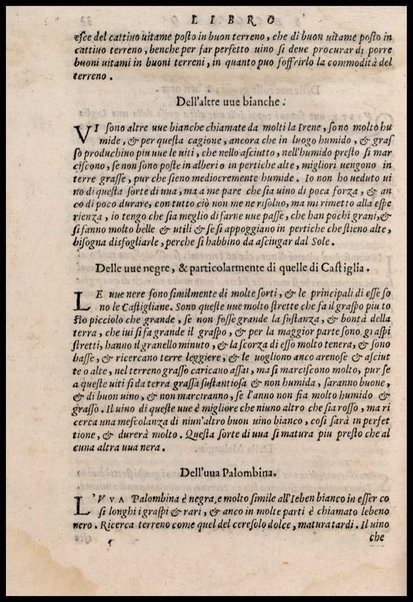 LIBRO
esce del cattiuo uitame posto in buon terreno, che di buon uitame posto in
cattiuo terreno, benche per far perfetto uino si deue procurar di porre
buoni uitami in buoni terreni, in quanto puo soffrirlo la commodità del
terreno.
Dell'altre uue bianche.
VI sono altre uue bianche chiamate da molti la Irene, sono molto hu
mide, & per questa cagione, ancora che in luogo humido, & graf
so produchino piu uue le uiti, che nello asciutto, nell'humido presto si mar
ciscono, se non sono poste in alberi o in pertiche alte, migliori uengono in
terre grasse, pur che sieno mediocremente humide. Io non ho ueduto ui
no di questa sorte di uua, ma a me pare che sia uino di poca forza, & an
co di poco durare, con tutto ciò non me ne risoluo, ma mi rimetto alla espe
rienza, io tengo che sia meglio di farne uue passe, che han pochi grani, &
si fanno molto belle & utili & se si appoggiano in pertiche che stieno alte,
bisogna disfogliarle, perche si habbino da asciugar dal Sole.
Delle uue negre, & particolarmente di quelle di Castiglia.
LE uue nere sono similmente di molte sorti, & le principali di esse so
no le Castigliane. Sono queste uue molto strette che fa il graspo piu to
sto picciolo che grande, se non fosse grande la sustanza, & bontà della
terra, che iui si fa grande il graspo, & per la maggior parte sono graspi
stretti, hanno il granello minuto, & la scorza di esso molto tenera, & sono
basse, & ricercano terre leggiere, & le uogliono anco arenose & asciut
te o alte, nel terreno grasso caricano assai, ma si marciscono molto, pur se
a queste uiti si da terra grassa sustantiosa & non humida, saranno buone,
& di buon uino, & non marciranno, se l'anno non fia molto humido &
grasso. Il uino di queste uue è migliore che niuno altro che sia rosso, ma ri
cerca una mescolanza di niun'altro buon uino bianco, così sarà in perfet
tione, & durerà molto. Questa sorte di uua si matura piu presto che al
cuna altra uua nera.
Dell'uua Palombina.
L'VVA Palombina è negra, e molto simile all'Ieben bianco in esser co
si longhi i graspi & rari, & anco in molte parti è chiamato lebeno
nero. Ricerca terreno come quel del ceresolo dolce, matura tardi. Il uino
che